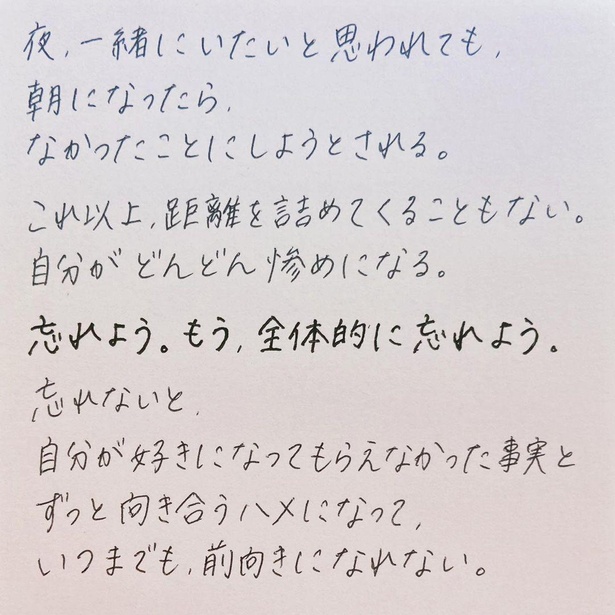 夜,一緒にいたいと思われても,
朝になったら,
なかったことにしようとされる。
これ以上,距離を詰めてくることもない。
自分がどんどん惨めになる。
忘れよう。もう,全体的に忘れよう。
忘れないと,
自分が好きになってもらえなかった事実と
ずっと向き合うハメになって,
いつまでも,前向きになれない。